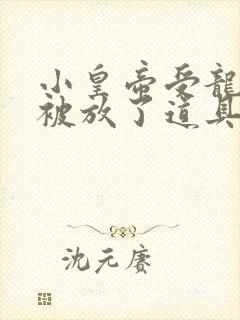 小皇帝受龍
被放了道具
沈元賡